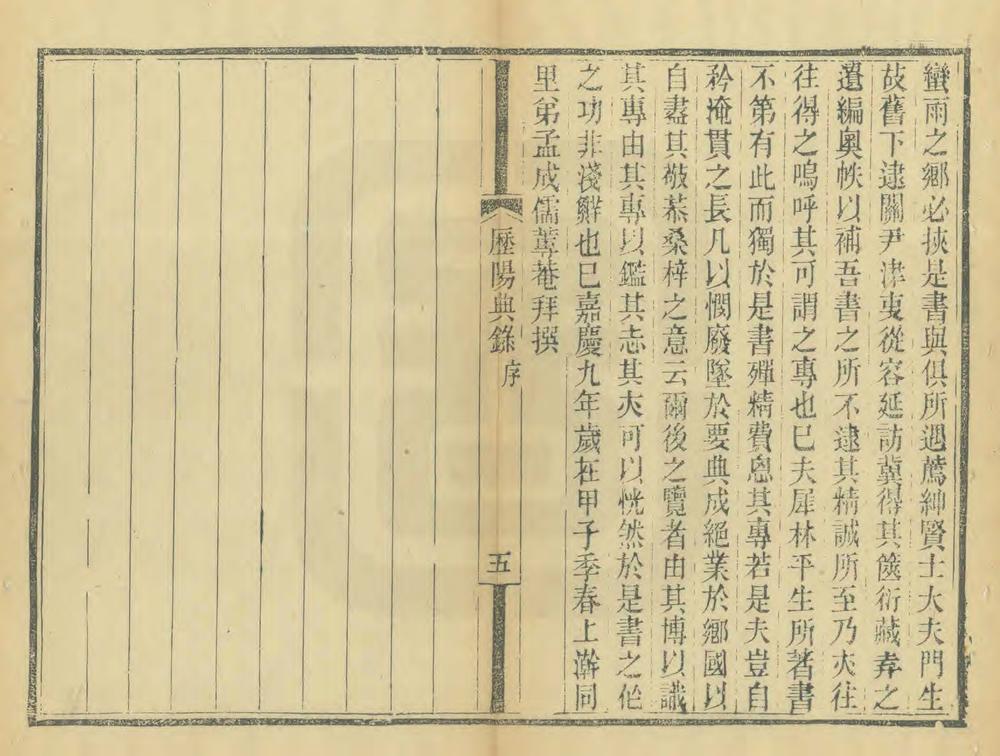 蠻雨之鄉必挾是書與俱所遇薦紳賢士大夫門生
故舊下逮關尹津吏從容延訪冀得其篋衍藏弆之
遺編奧帙以補吾書之所不逮其精誠所至乃亦往
往得之嗚呼其可謂之專也已夫犀林平生所著書
不第有此而獨於是書殫精費恖其專若是夫豈自
矜淹貫之長凡以憫廢墜於要典成絕業於鄉國以
自盡其敬恭桑梓之意云爾後之覽者由其博以識
其專由其專以鑑其志其亦可以恍然於是書之作
之功非淺鮮也已嘉慶九年歲在甲子季春上澣同
里弟孟成儒蓴菴拜撰
歷陽典錄 序 五